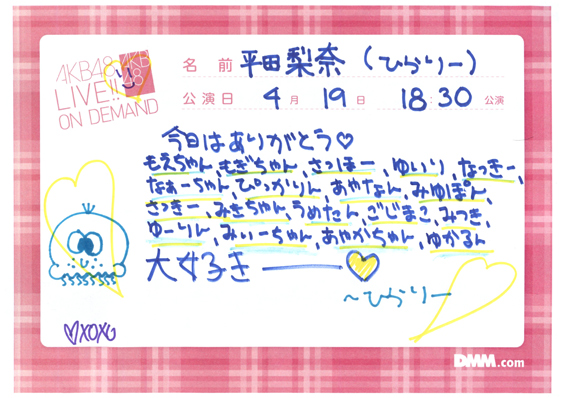 AKB48
LIVE!!
ON DEMAND
AKB
48
名前 平田梨奈（ひらりー）
公演日 4月 19日 18:30公演
今日はありがとう♡
もえちゃん、もぎちゃん、さっほー、ゆいり、なっきー、
なぁーちゃん、ぴっかりん、あやなん、みゆぽん、
さっきー、みきちゃん、うめたん、ごじまこ、みつき、
ゆーりん、みぃーちゃん、あやかちゃん、ゆかるん
大好きー♡
～ひらりー
♡xoxo
DMM.com